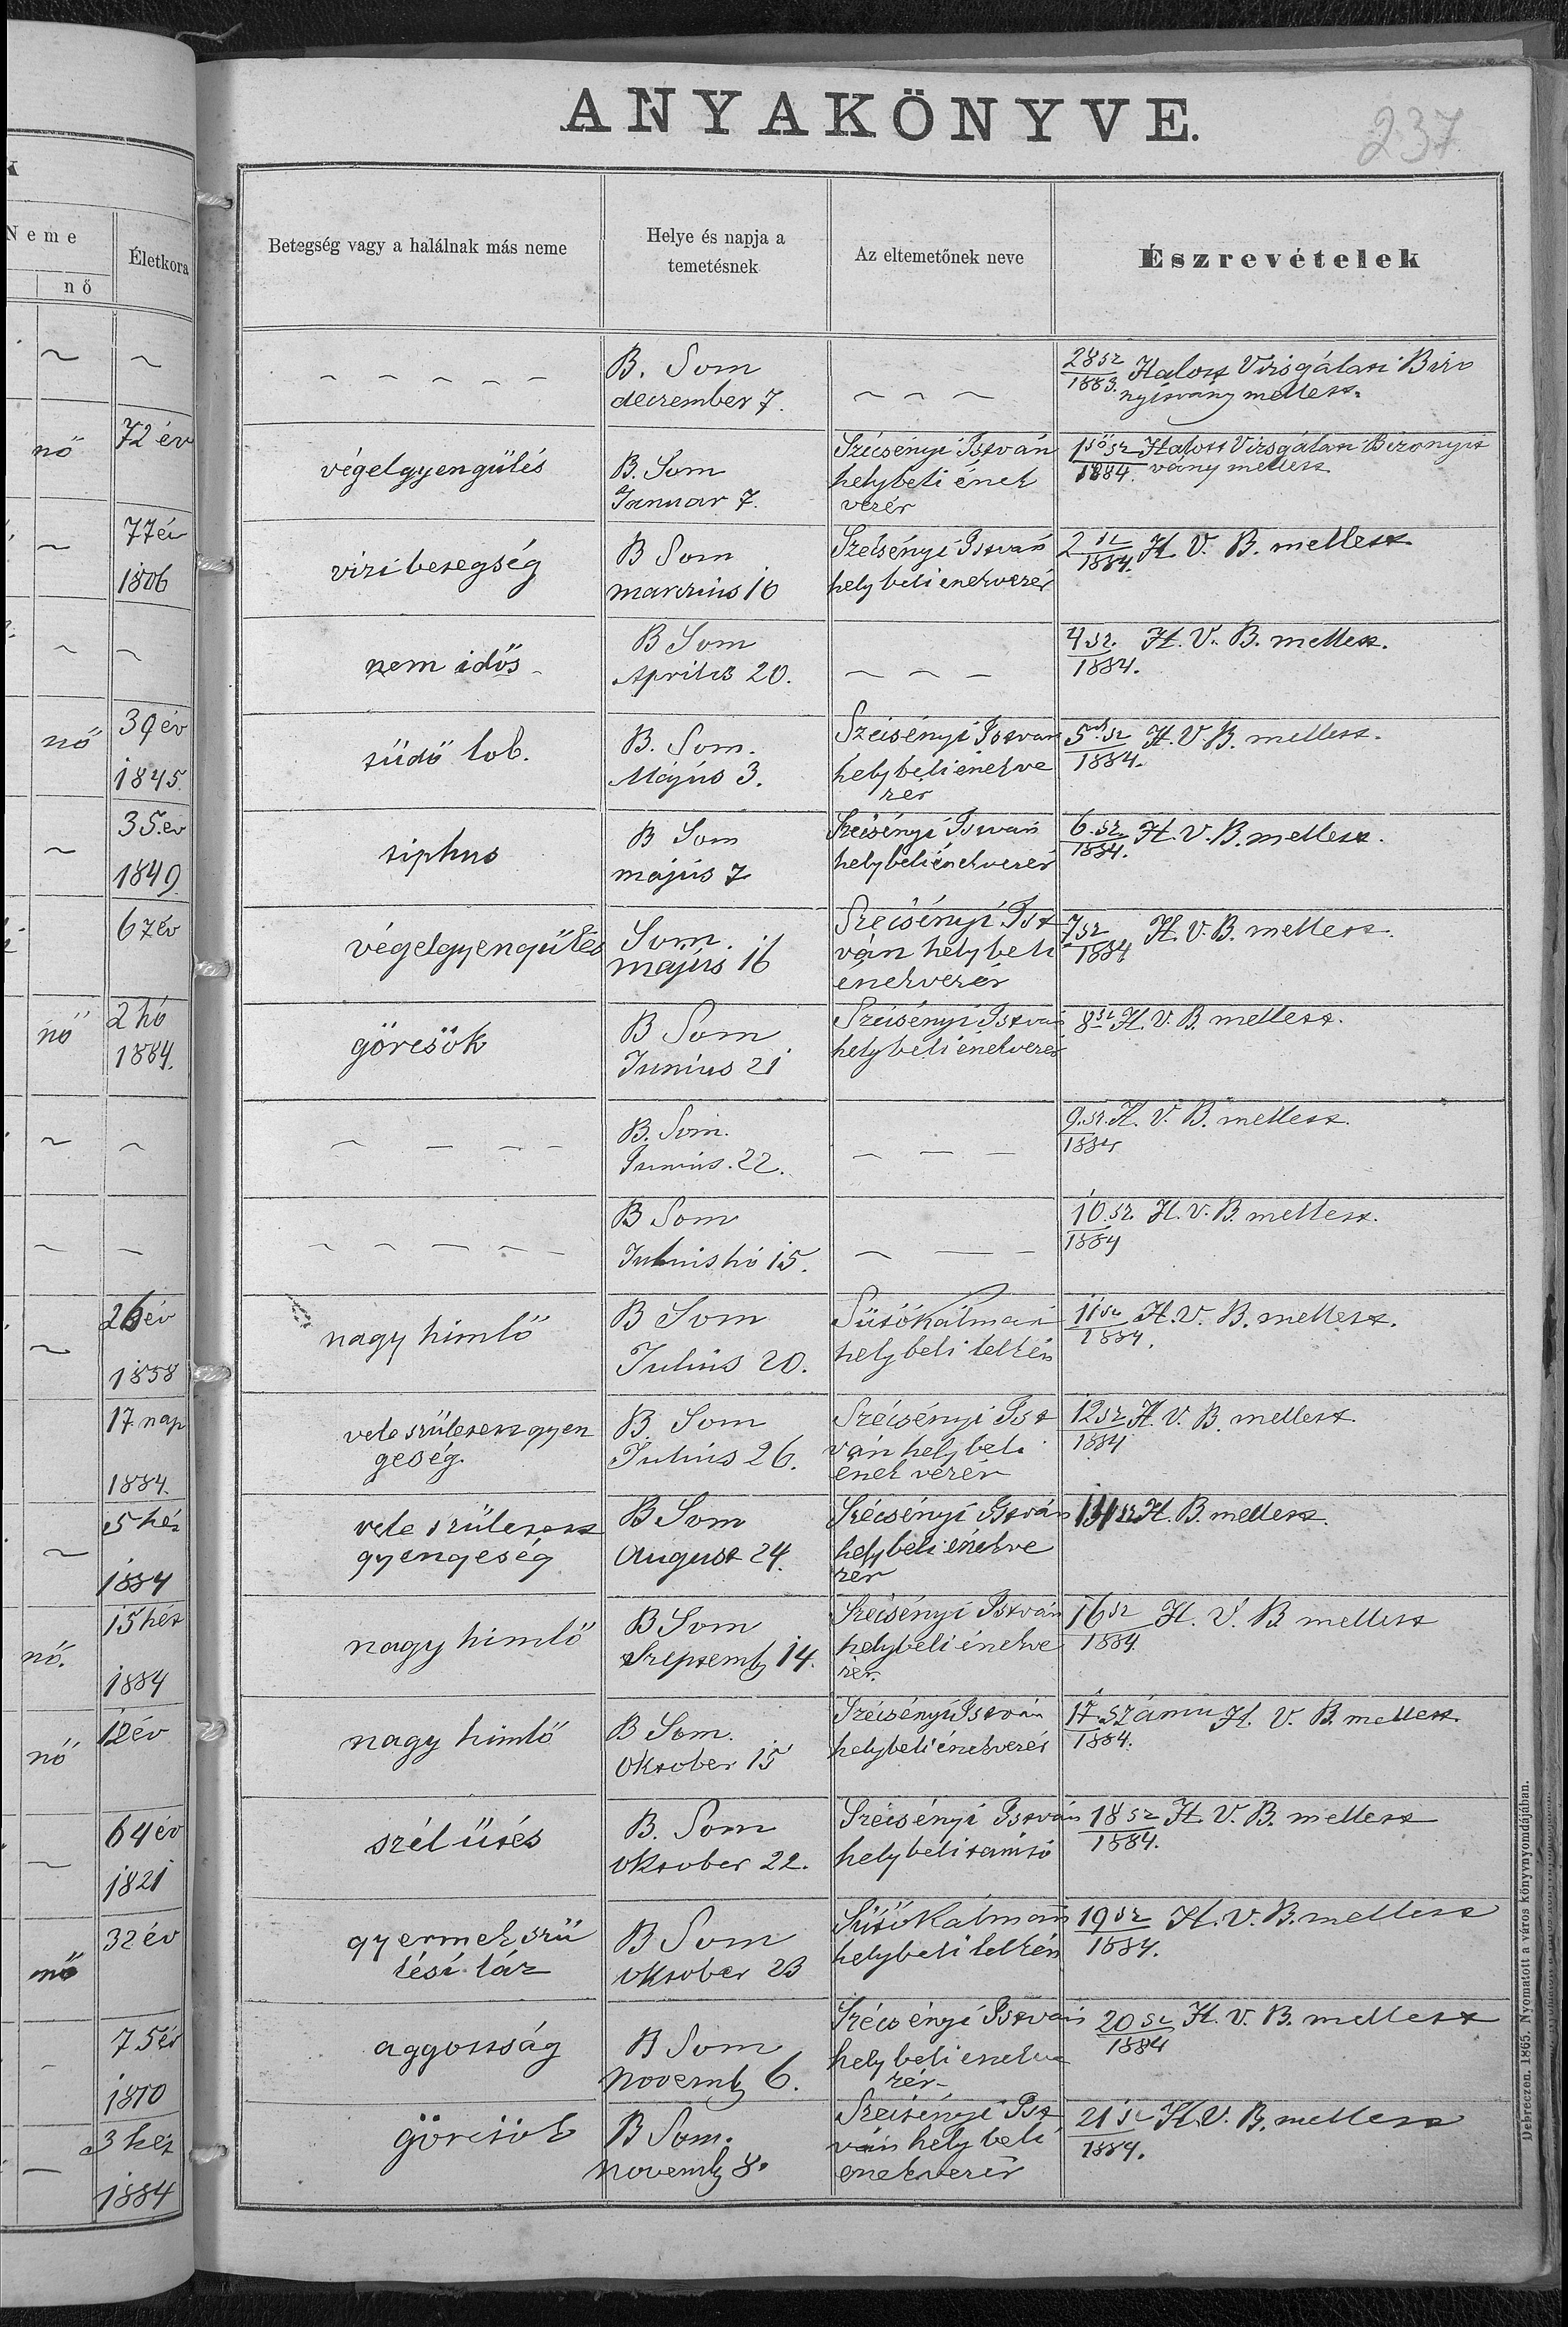 ANYAKÖNYVE.
237
Neme
Életkora
nő
Betegség vagy a halálnak más neme
Helye és napja a
temetésnek
Az eltemetőnek neve
Észrevételek
~ ~
— — — — —
B. Som
december 7.
~ ~ ~
28 sz
1883. Halott Vizsgálati Bizo
nyitvány mellett.
nő 72 év
végelgyengülés
B. Som
Januar 7.
Szécsényi István
helybeli ének
vezér
1ső sz Halott Vizsgálati Bizonyit
1884. vány mellett
~ 77 év
1806
vizibetegség
B Som
marczius 10
Szécsényi István
helybeli énekvezér
2 sz H. V. B. mellett
1884.
~ ~
nem idős
B Som
Aprilis 20.
~ ~ ~
4 sz. H. V. B. mellett.
1884.
nő 39 év
1845.
tüdő lob.
B. Som.
Május 3.
Szécsényi István
helybeli énekve
zér
5 sz H. V. B. mellett.
1884.
~ 35. év
1849
tiphus
B Som
május 7
Szécsényi István
helybeli énekvezér
6 sz H. V. B. mellett.
1884.
67 év
végelgyengülés
Som.
május 16
Szécsényi Ist
ván helybeli
énekvezér
7 sz H. V. B. mellett.
1884
nő 2 hó
1884.
görcsök
B Som
Junius 21
Szécsényi István
helybeli énekvezér
8 sz H. V. B. mellett.
~ ~
— — — —
B. Som.
Junius. 22.
— — —
9. sz. H. V. B. mellett.
1884
~ ~
— — — — —
B Som
Julius hó 15.
— — —
10. sz. H. V. B. mellett.
1884
~ 26 év
1858
nagy himlő
B Som
Julius 20.
Sütő Kálmán
helybeli lelkész
11 sz H. V. B. mellett.
1884.
17. nap
1884.
vele született gyen
geség.
B. Som
Julius 26.
Szécsényi Ist
ván helybeli
ének vezér
12 sz H. V. B. mellett.
1884
~ 5 hét
1884
vele született
gyengeség
B Som
August 24.
Szécsényi István
helybeli énekve
zér
sz H. B. mellett.
nő. 15 hét
1884
nagy himlő
B Som
Szeptemb 14.
Szécsényi István
helybeli énekve
zér.
16 sz H. V. B. mellett
1884.
nő 12 év
nagy himlő
B Som.
Oktober 15
Szécsényi István
helybeli énekvezér
17 számu H. V. B. mellett.
1884.
~ 64 év
1821
szél ütés
B. Som
Oktober 22.
Szécsényi István
helybeli tanitó
18 sz H. V. B. mellett
1884.
nő 32 év
gyermek szü
lési láz
B Som
Oktober 23
Sütő Kálmán
helybeli lelkész
19 sz H. V. B. mellett
1884.
75 év
1810
aggosság
B Som
Novemb 6.
Szécsényi István
helybeli énekve
zér
20 sz H. V. B. mellett
1884
— 3 hét
1884
görcsök
B Som.
Novemb 8.
Szécsényi Ist
ván helybeli
énekvezér
21 sz H. V. B. mellett
1884.
Debreczen. 1865. Nyomatott a város könyvnyomdájában.